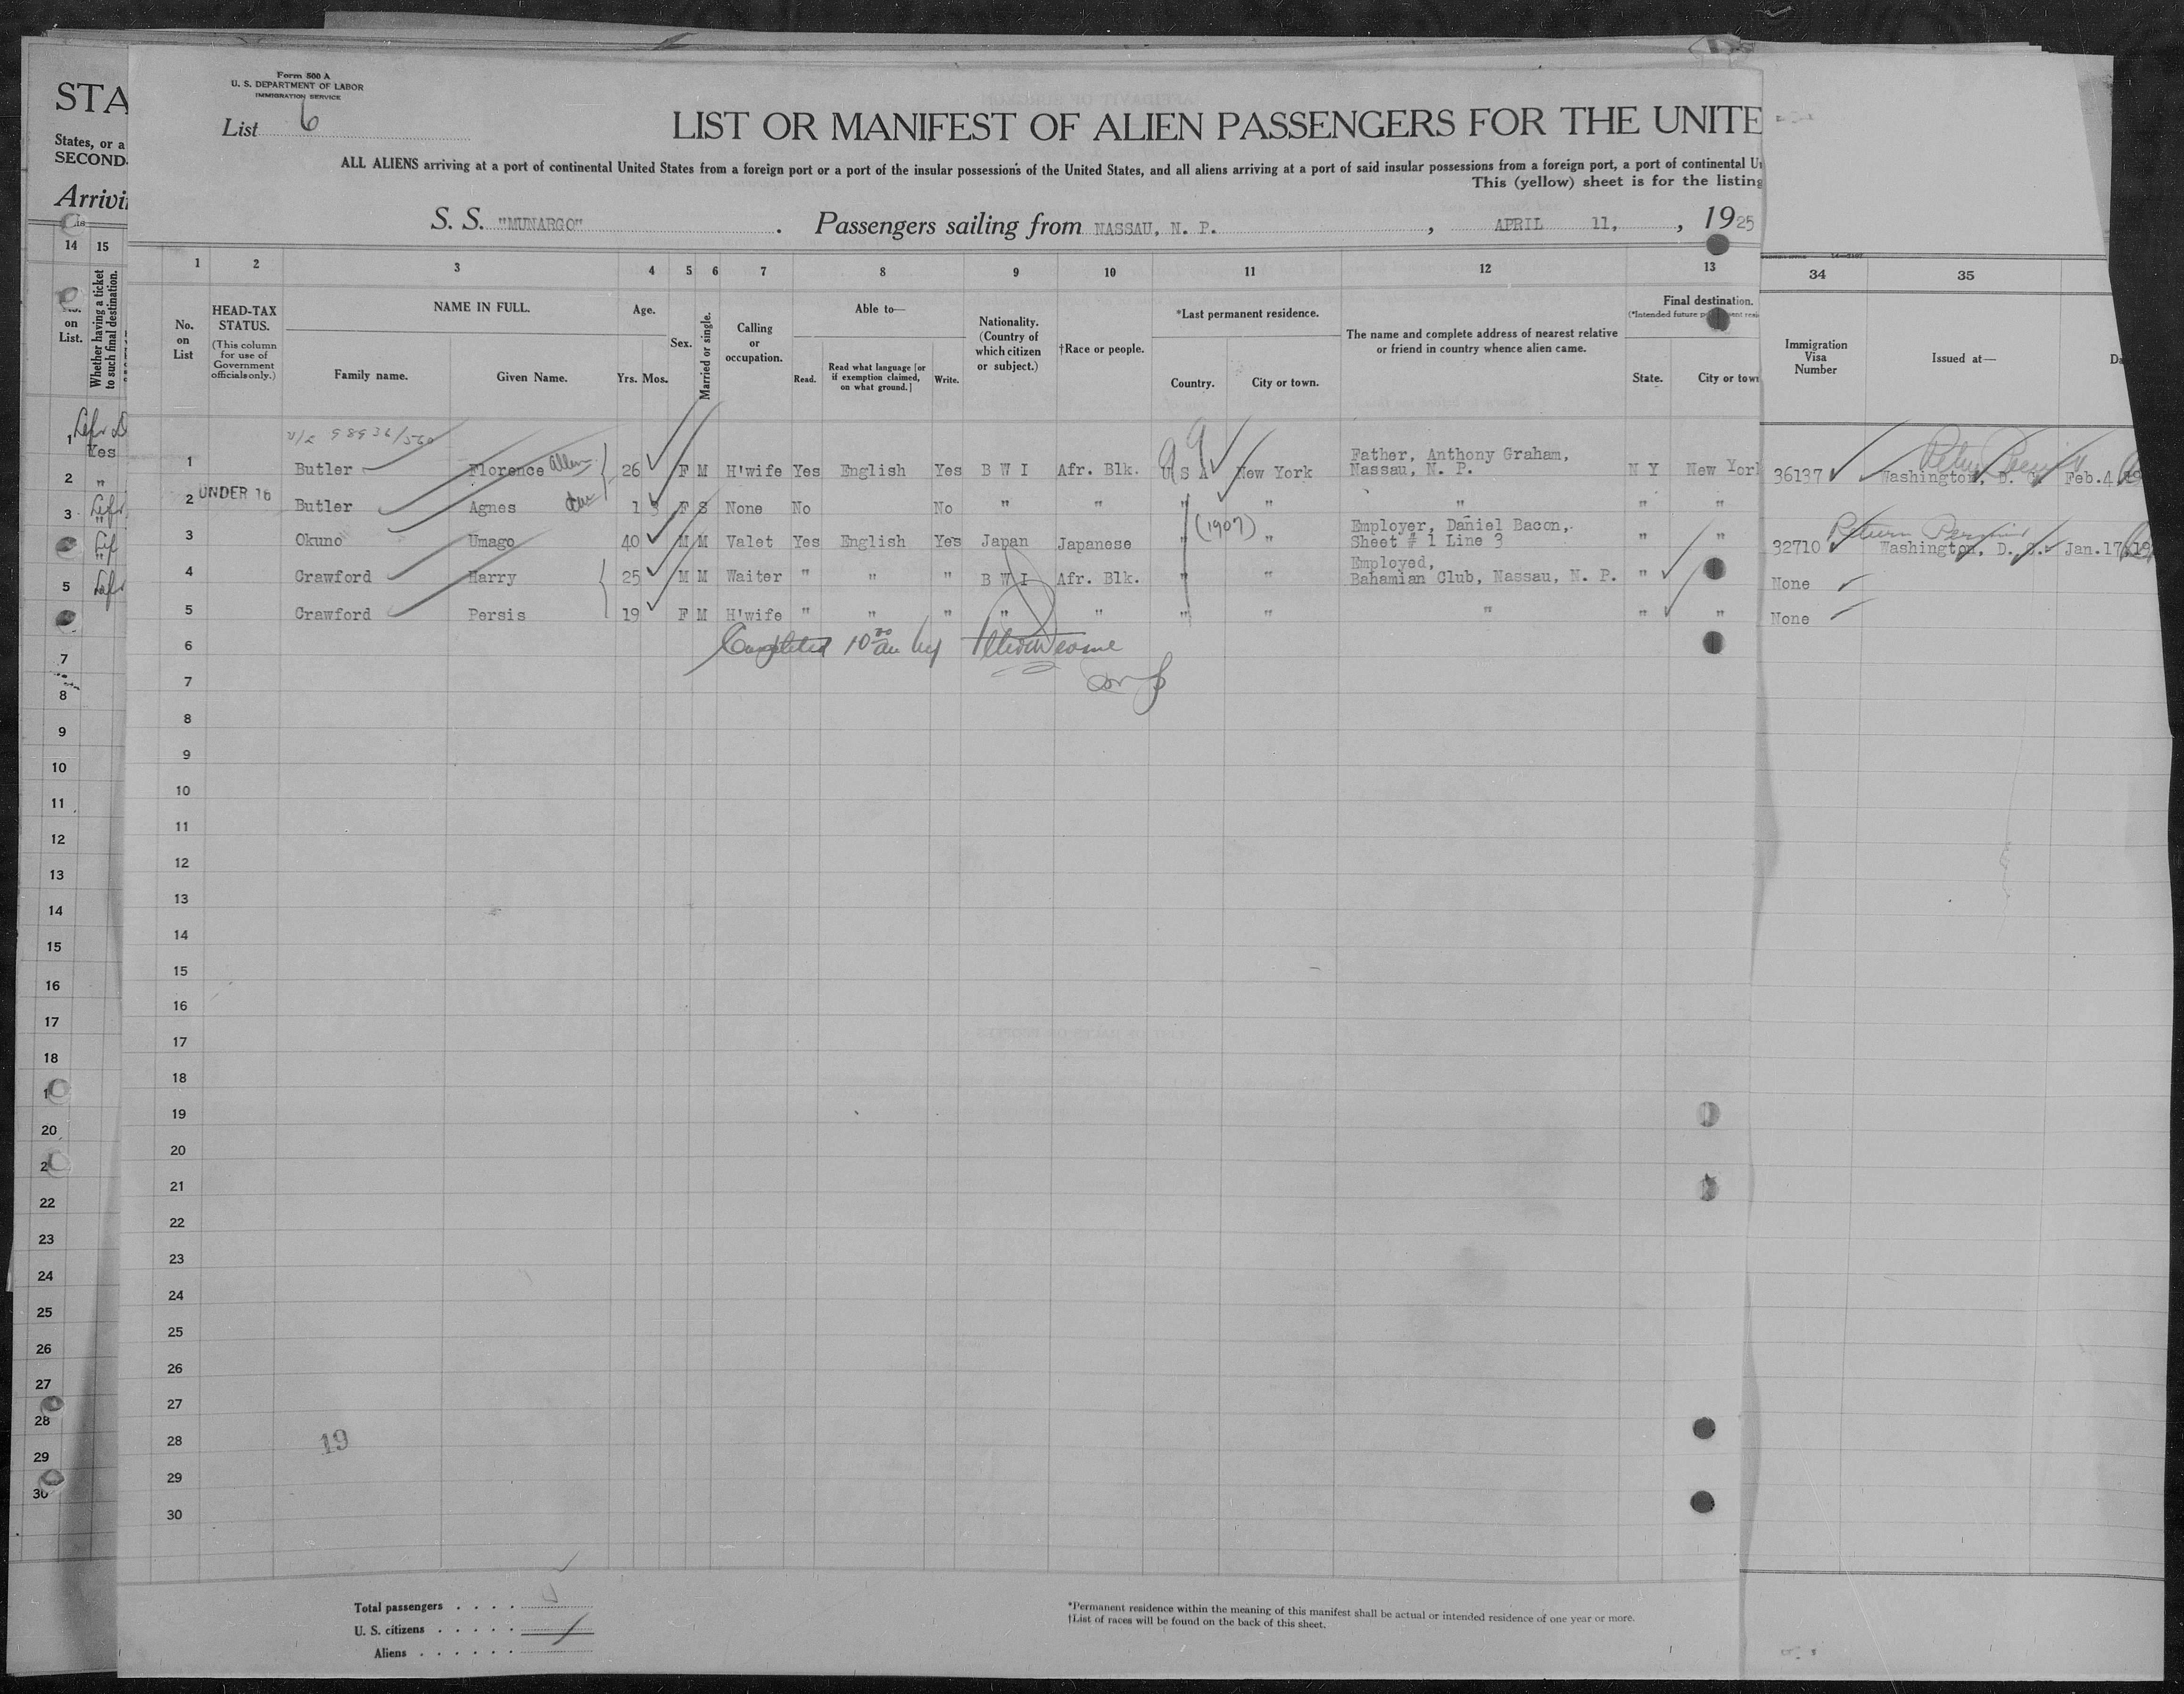 Form 500 A
U. S. DEPARTMENT OF LABOR
IMMIGRATION SERVICE
List 6
LIST OR MANIFEST OF ALIEN PASSENGERS FOR THE UNITE
ALL ALIENS arriving at a port of continental United States from a foreign port or a port of the insular possessions of the United States, and all aliens arriving at a port of said insular possessions from a foreign port, a port of continental
This (yellow) sheet is for the listing
S. S. "MUNARGO" . Passengers sailing from NASSAU, N. P. , APRIL 11, , 1925
STA
States, or a
SECOND
Arrivi
14 15
No. on List.
Whether having a ticket to such final destination.
1 2 3 4 5 6 7 8 9 10 11 12 13 34 35
No. on List
HEAD-TAX STATUS.
(This column for use of Government officials only.)
NAME IN FULL.
Family name. Given Name.
Age.
Yrs. Mos.
Sex.
Married or single.
Calling or occupation.
Able to—
Read. Read what language [or if exemption claimed, on what ground.] Write.
Nationality. (Country of which citizen or subject.)
†Race or people.
*Last permanent residence.
Country. City or town.
The name and complete address of nearest relative or friend in country whence alien came.
Final destination.
State. City or town
Immigration Visa Number
Issued at—
98936/560
1 Butler Florence 26 F M H'wife Yes English Yes B W I Afr. Blk. U S A New York Father, Anthony Graham, Nassau, N. P. N Y New York 36137 Washington, D. C. Feb. 4
2 UNDER 16 Butler Agnes 1 3 F S None No No " " " " " " "
3 Okuno Umago 40 M M Valet Yes English Yes Japan Japanese " (1907) " Employer, Daniel Bacon, Sheet # 1 Line 3 " " 32710 Return Permit Washington, D. C. Jan. 17
4 Crawford Harry 25 M M Waiter " " " B W I Afr. Blk. " " Employed, Bahamian Club, Nassau, N. P. " None
5 Crawford Persis 19 F M H'wife " " " " " " " " " " None
6 Completed 10 00 am by
7
8
9
10
11
12
13
14
15
16
17
18
19
20
21
22
23
24
25
26
27
28
29
30
19
Total passengers . . . .
U. S. citizens . . . . .
Aliens . . . . . .
*Permanent residence within the meaning of this manifest shall be actual or intended residence of one year or more.
†List of races will be found on the back of this sheet.